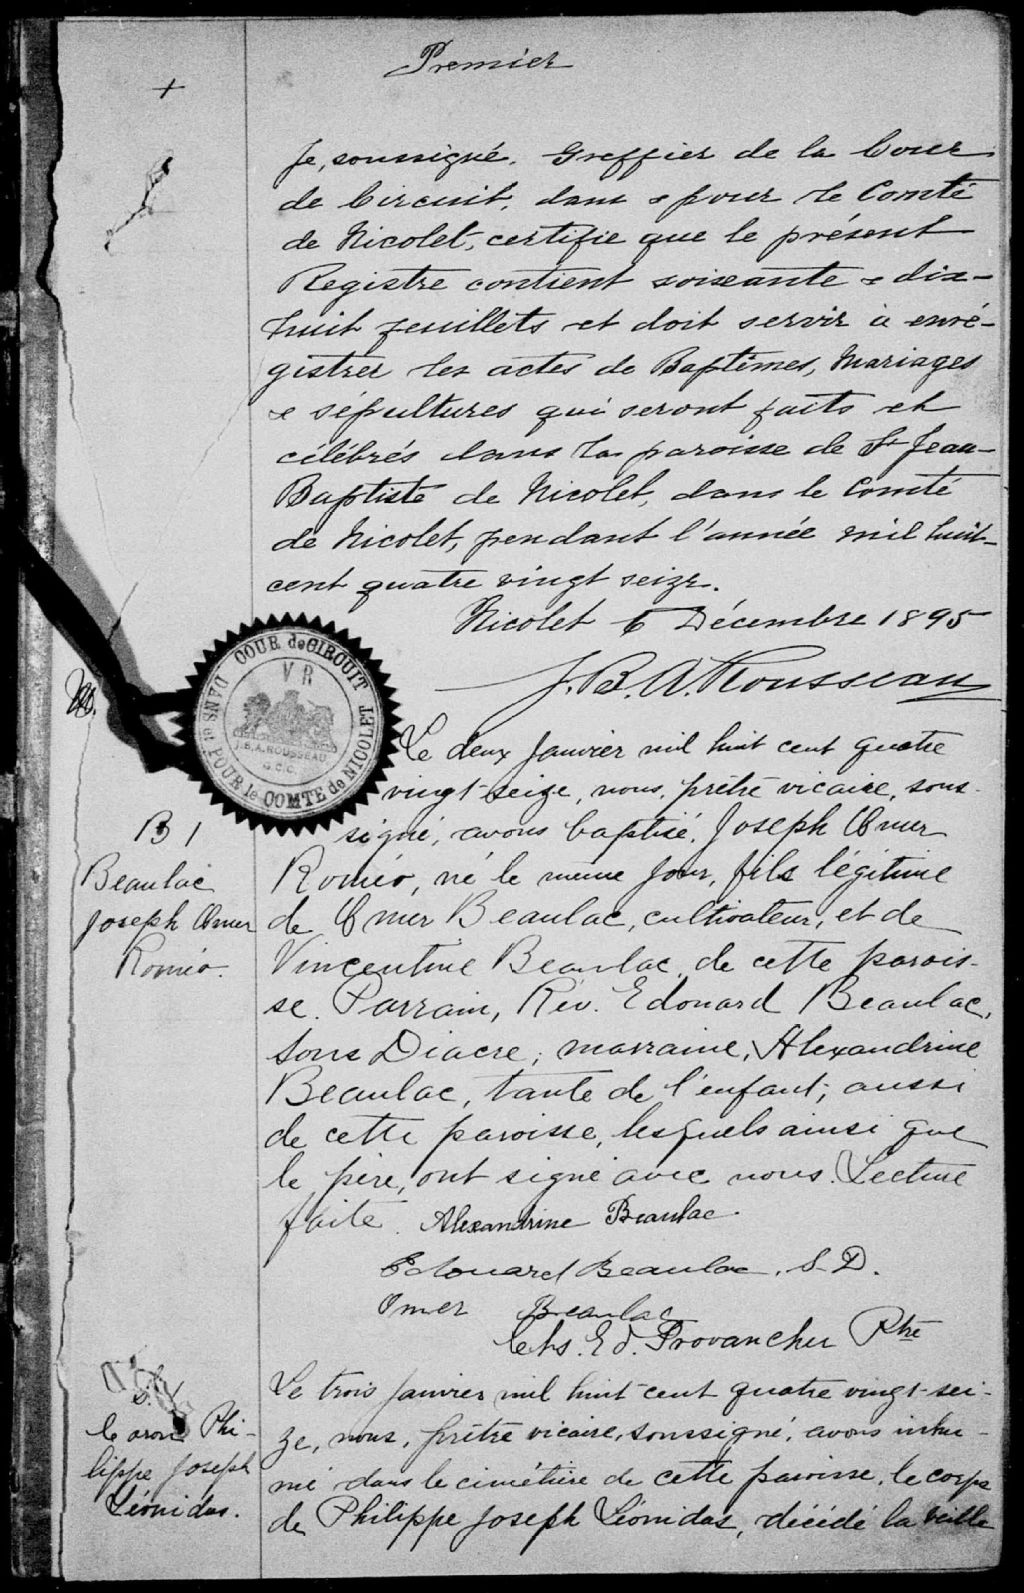 Premier
Je, soussigné, Greffier de la Cour
de Circuit, dans & pour le Comté
de Nicolet, certifie que le présent
Registre contient soixante & dix-
huit feuillets et doit servir à enré-
gistrer les actes de Baptêmes, Mariages
& sépultures qui seront faits et
célébrés dans la paroisse de St Jean-
Baptiste de Nicolet, dans le Comté
de Nicolet, pendant l'année mil huit-
cent quatre vingt seize.
Nicolet 6 Décembre 1895
J. B. A. Rousseau
COUR de CIRCUIT
DANS et POUR le COMTE de NICOLET
V R
J.B.A. ROUSSEAU
G.C.C.
B 1
Beaulac
Joseph Omer
Roméo.
Le deux Janvier mil huit cent quatre
vingt-seize, nous, prêtre vicaire, sous-
signé, avons baptisé, Joseph Omer
Roméo, né le même jour, fils légitime
de Omer Beaulac, cultivateur, et de
Vincentine Beaulac, de cette parois-
se. Parrain, Rév. Edouard Beaulac,
Sous Diacre; marraine, Alexandrine
Beaulac, tante de l'enfant; aussi
de cette paroisse, lesquels ainsi que
le père, ont signé avec nous. Lecture
faite. Alexandrine Beaulac.
Edouard Beaulac, S. D.
Omer Beaulac
Chs. Ed. Provancher Ptre
S.
Caron Phi-
lippe Joseph
Léonidas.
Le trois Janvier mil huit cent quatre vingt-sei-
ze, nous, prêtre vicaire, soussigné, avons inhu-
mé dans le cimétière de cette paroisse, le corps
de Philippe Joseph Léonidas, décédé la veille